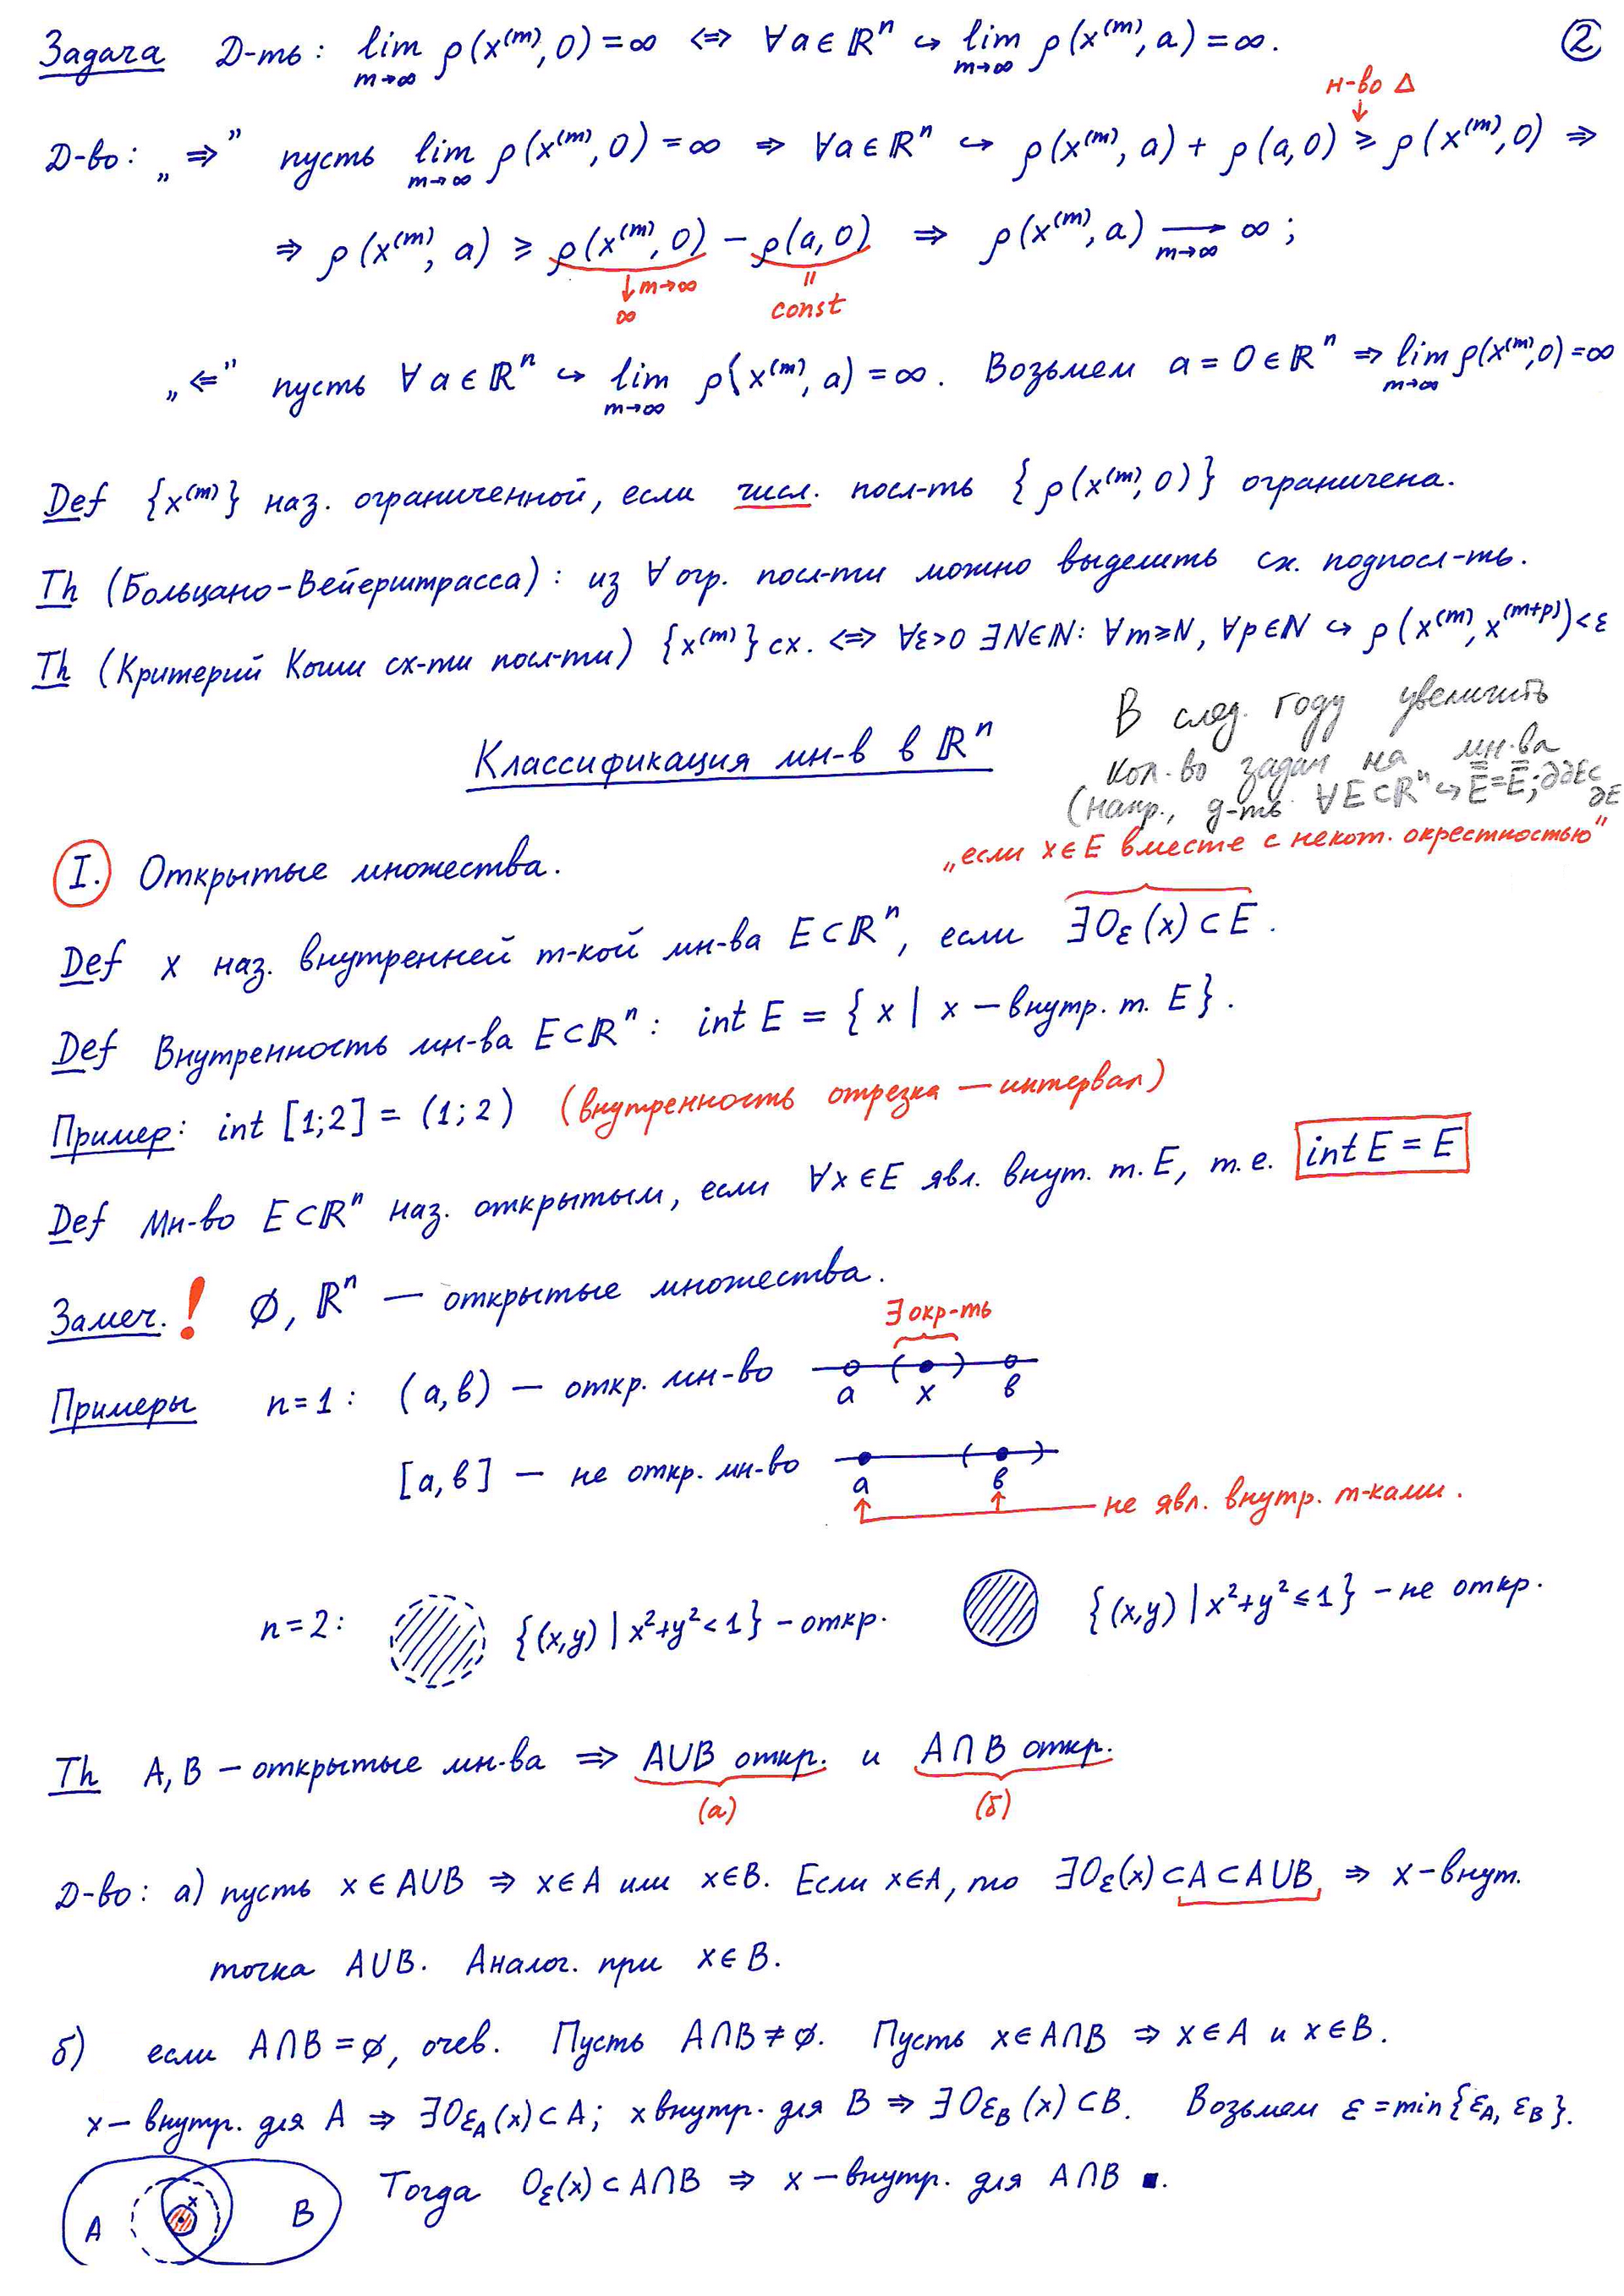 Задача Д-ть: lim ρ(x⁽ᵐ⁾, 0) = ∞ ⇔ ∀a ∈ ℝⁿ ↪ lim ρ(x⁽ᵐ⁾, a) = ∞. ②
m→∞ m→∞
н-во Δ
↓
Д-во: „⇒” пусть lim ρ(x⁽ᵐ⁾, 0) = ∞ ⇒ ∀a ∈ ℝⁿ ↪ ρ(x⁽ᵐ⁾, a) + ρ(a, 0) ≥ ρ(x⁽ᵐ⁾, 0) ⇒
m→∞
⇒ ρ(x⁽ᵐ⁾, a) ≥ ρ(x⁽ᵐ⁾, 0) − ρ(a, 0) ⇒ ρ(x⁽ᵐ⁾, a) → ∞;
m→∞
↓ m→∞ =
∞ const
„⇐” пусть ∀a ∈ ℝⁿ ↪ lim ρ(x⁽ᵐ⁾, a) = ∞. Возьмем a = 0 ∈ ℝⁿ ⇒ lim ρ(x⁽ᵐ⁾, 0) = ∞
m→∞ m→∞
Def {x⁽ᵐ⁾} наз. ограниченной, если числ. посл-ть {ρ(x⁽ᵐ⁾, 0)} ограничена.
Th (Больцано-Вейерштрасса): из ∀ огр. посл-ти можно выделить сх. подпосл-ть.
Th (Критерий Коши сх-ти посл-ти) {x⁽ᵐ⁾} сх. ⇔ ∀ε>0 ∃N∈ℕ: ∀m≥N, ∀p∈ℕ ↪ ρ(x⁽ᵐ⁾, x⁽ᵐ⁺ᵖ⁾) < ε
В след. году увеличить
кол-во задач на мн-ва
(напр., д-ть ∀E⊂ℝⁿ ↪ E̿ = E̅; ∂∂E⊂
∂E
Классификация мн-в в ℝⁿ
„если x∈E вместе с некот. окрестностью”
I. Открытые множества.
Def x наз. внутренней т-кой мн-ва E⊂ℝⁿ, если ∃O_ε(x) ⊂ E.
Def Внутренность мн-ва E⊂ℝⁿ: int E = {x | x — внутр. т. E}.
Пример: int [1;2] = (1;2) (внутренность отрезка — интервал)
Def Мн-во E⊂ℝⁿ наз. открытым, если ∀x∈E явл. внут. т. E, т.е. int E = E
Замеч. ! ∅, ℝⁿ — открытые множества.
∃ окр-ть
Примеры n=1: (a, b) — откр. мн-во
a x b
[a, b] — не откр. мн-во
a b
не явл. внутр. т-ками.
n=2: {(x,y) | x²+y²<1} – откр. {(x,y) | x²+y²≤1} – не откр.
Th A, B – открытые мн-ва ⇒ A∪B откр. и A∩B откр.
(а) (б)
Д-во: а) пусть x∈A∪B ⇒ x∈A или x∈B. Если x∈A, то ∃O_ε(x)⊂A⊂A∪B ⇒ x – внут.
точка A∪B. Аналог. при x∈B.
б) если A∩B=∅, очев. Пусть A∩B≠∅. Пусть x∈A∩B ⇒ x∈A и x∈B.
x – внутр. для A ⇒ ∃O_εA(x)⊂A; x внутр. для B ⇒ ∃O_εB(x)⊂B. Возьмем ε=min{εA, εB}.
Тогда O_ε(x)⊂A∩B ⇒ x – внутр. для A∩B ■.
A x B